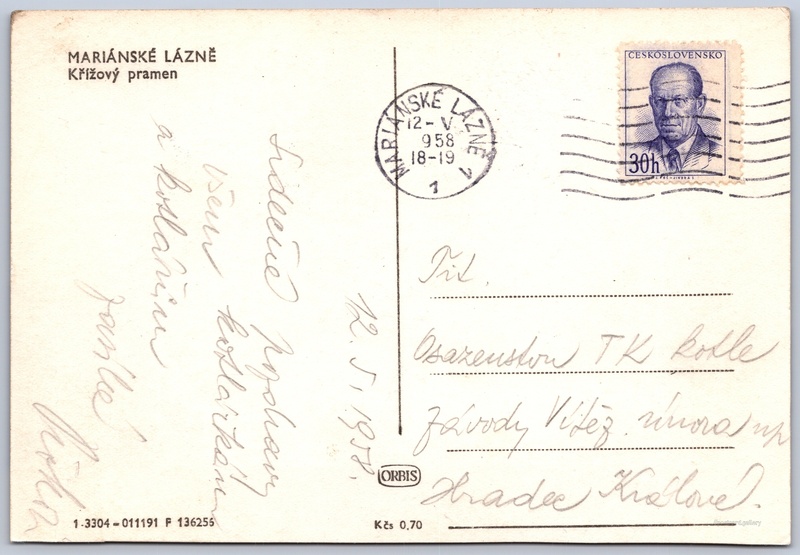 MARIÁNSKÉ LÁZNĚ
Křížový pramen
12. 5. 1958.
Srdečné pozdravy
všem kotlářkám
a kotlářům
zasílá
MARIÁNSKÉ LÁZNĚ 1
12-V
958
18-19
1
ČESKOSLOVENSKO
30h
Tit.
Osazenstvu TK kotle
závody Vítěz. února np
Hradec Králové.
ORBIS
1-3304-011191 F 136256
Kčs 0,70